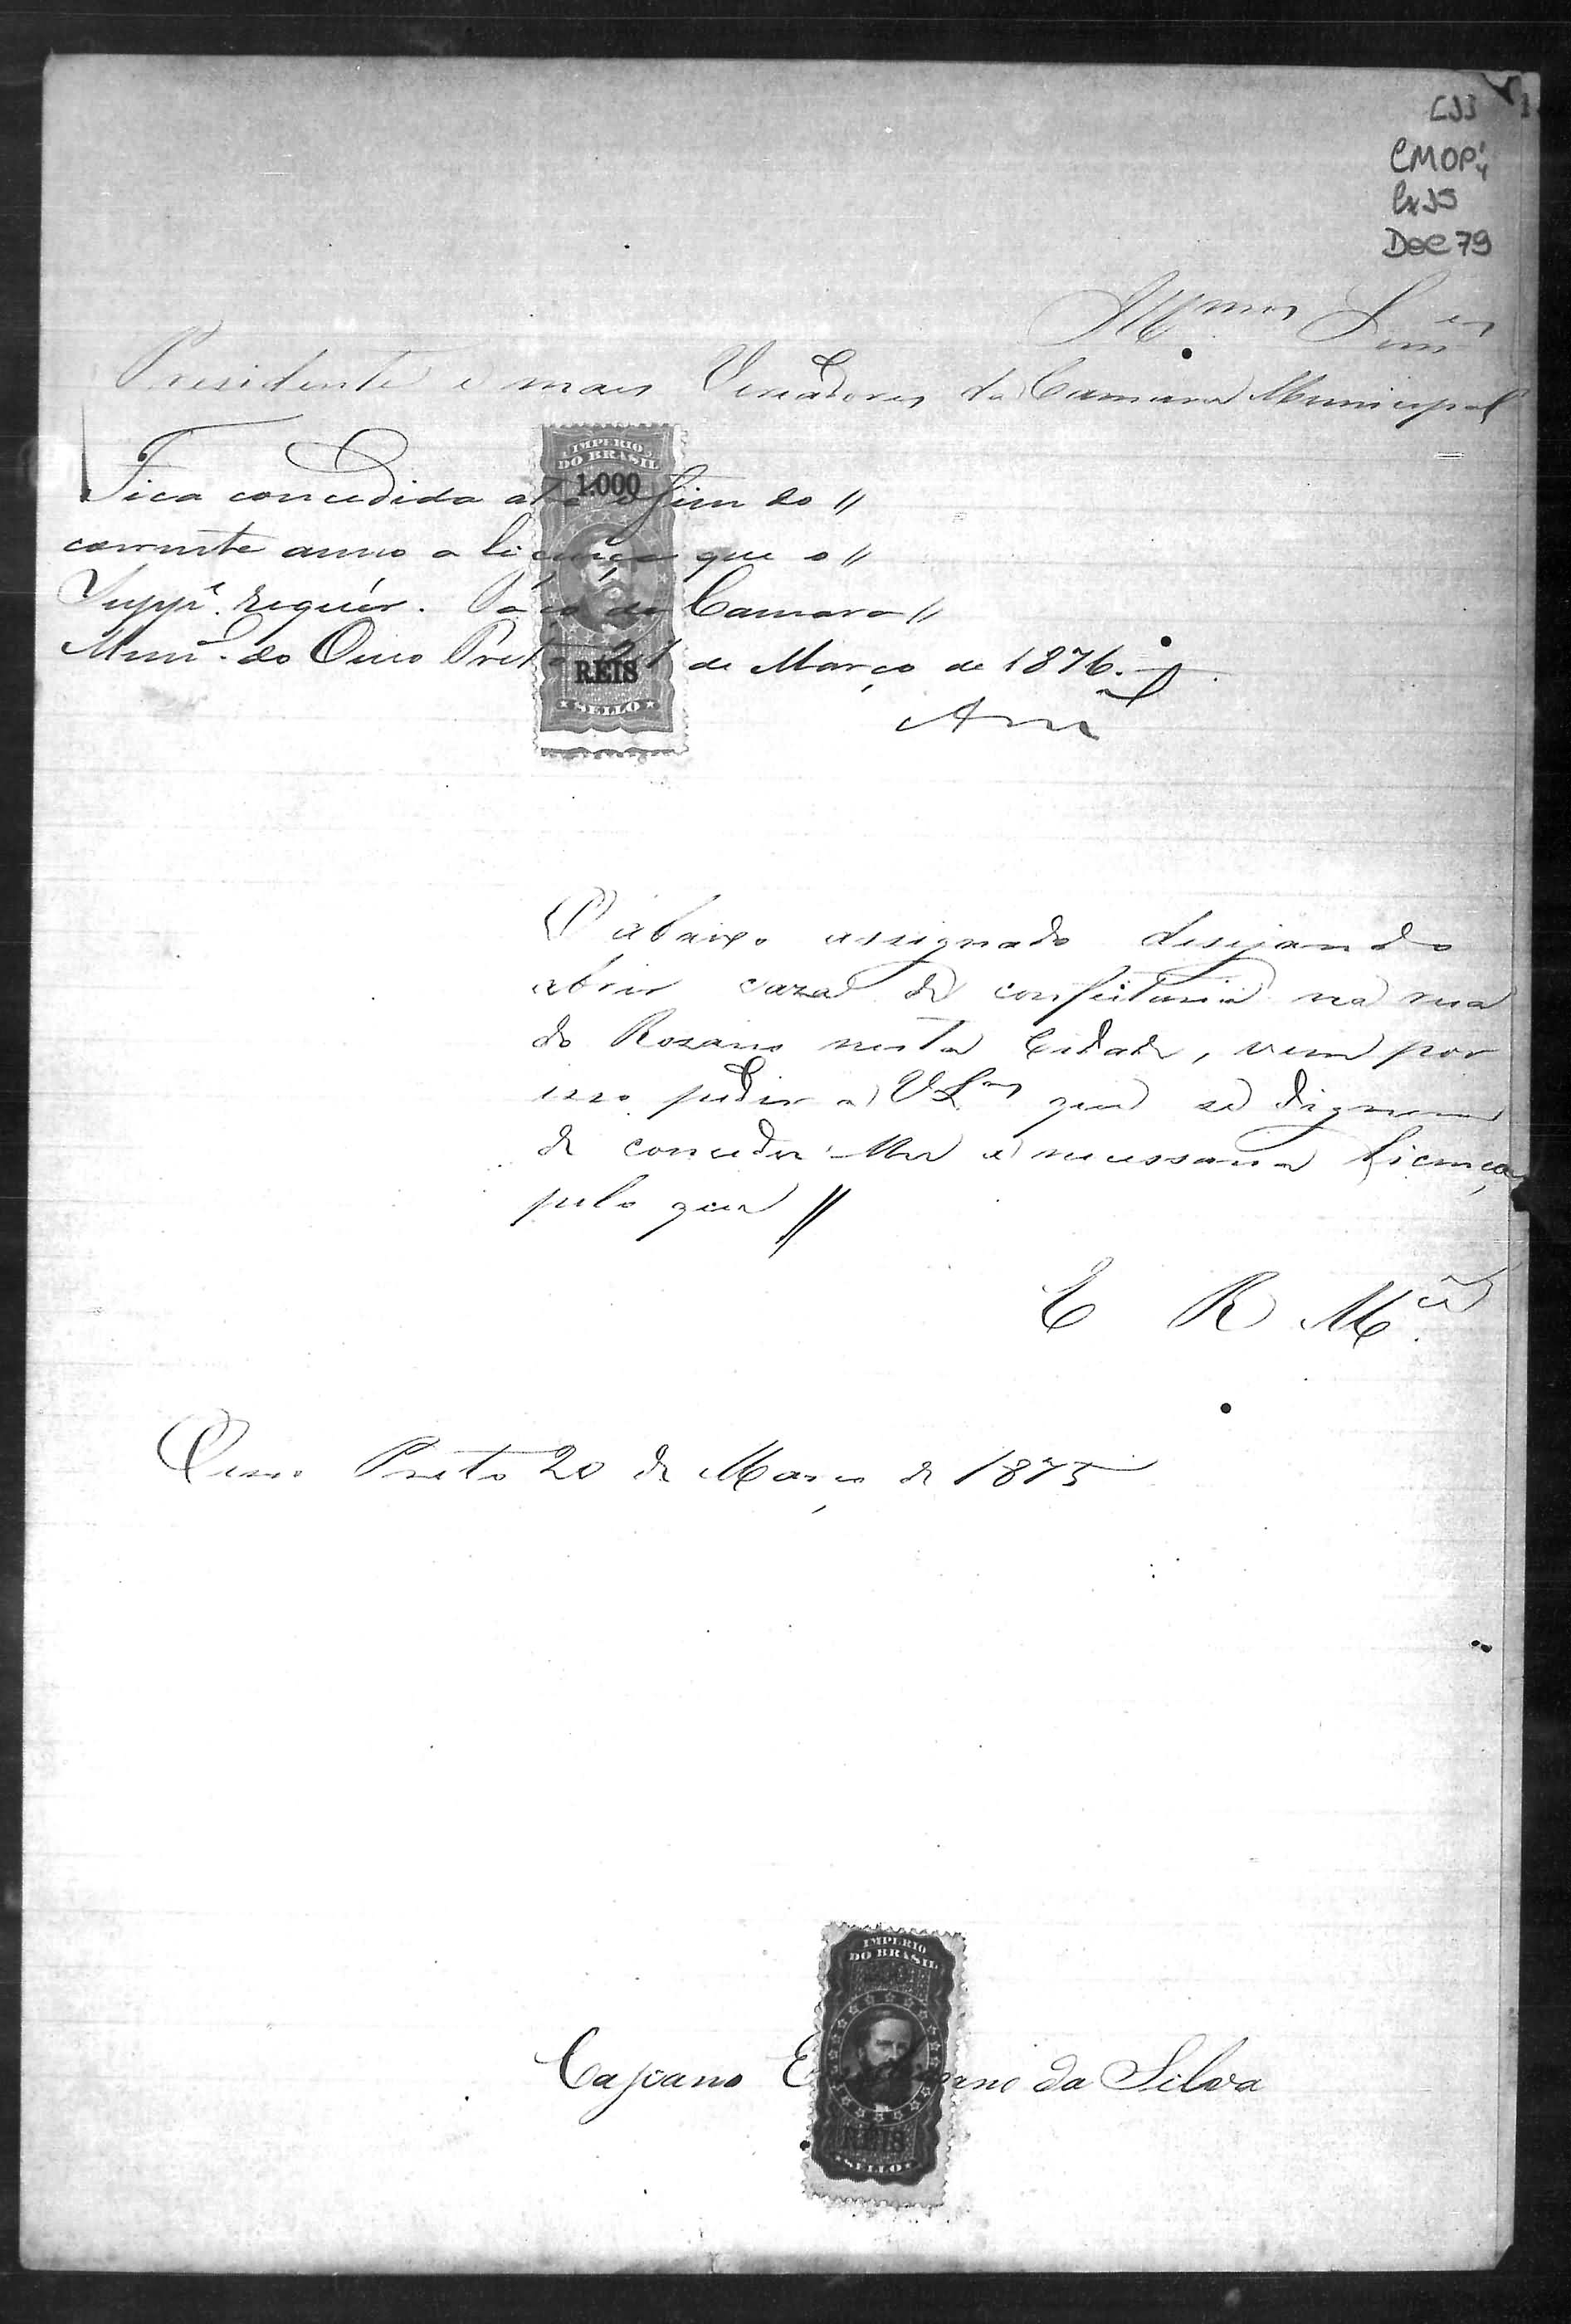 CMOP
Cx 15
Doc 79
Illmos Snres
Presidente e mais Vereadores da Camara Municipal
IMPERIO
DO BRASIL
1.000
REIS
SELLO
Fica concedida até o fim do //
corrente anno a licença que o //
Suppe. requér. Paço da Camara //
Munal. do Ouro Preto 21 de Março de 1876.
O abaixo assignado desejando
abrir caza de confeitaria na rua
do Rozario nesta Cidade, vem por
isso pedir a VSas que se dignem
de conceder-lhe a necessaria licença
pelo que //
E R Mce
Ouro Preto 20 de Março de 1875
IMPERIO
DO BRASIL
REIS
SELLO
da Silva